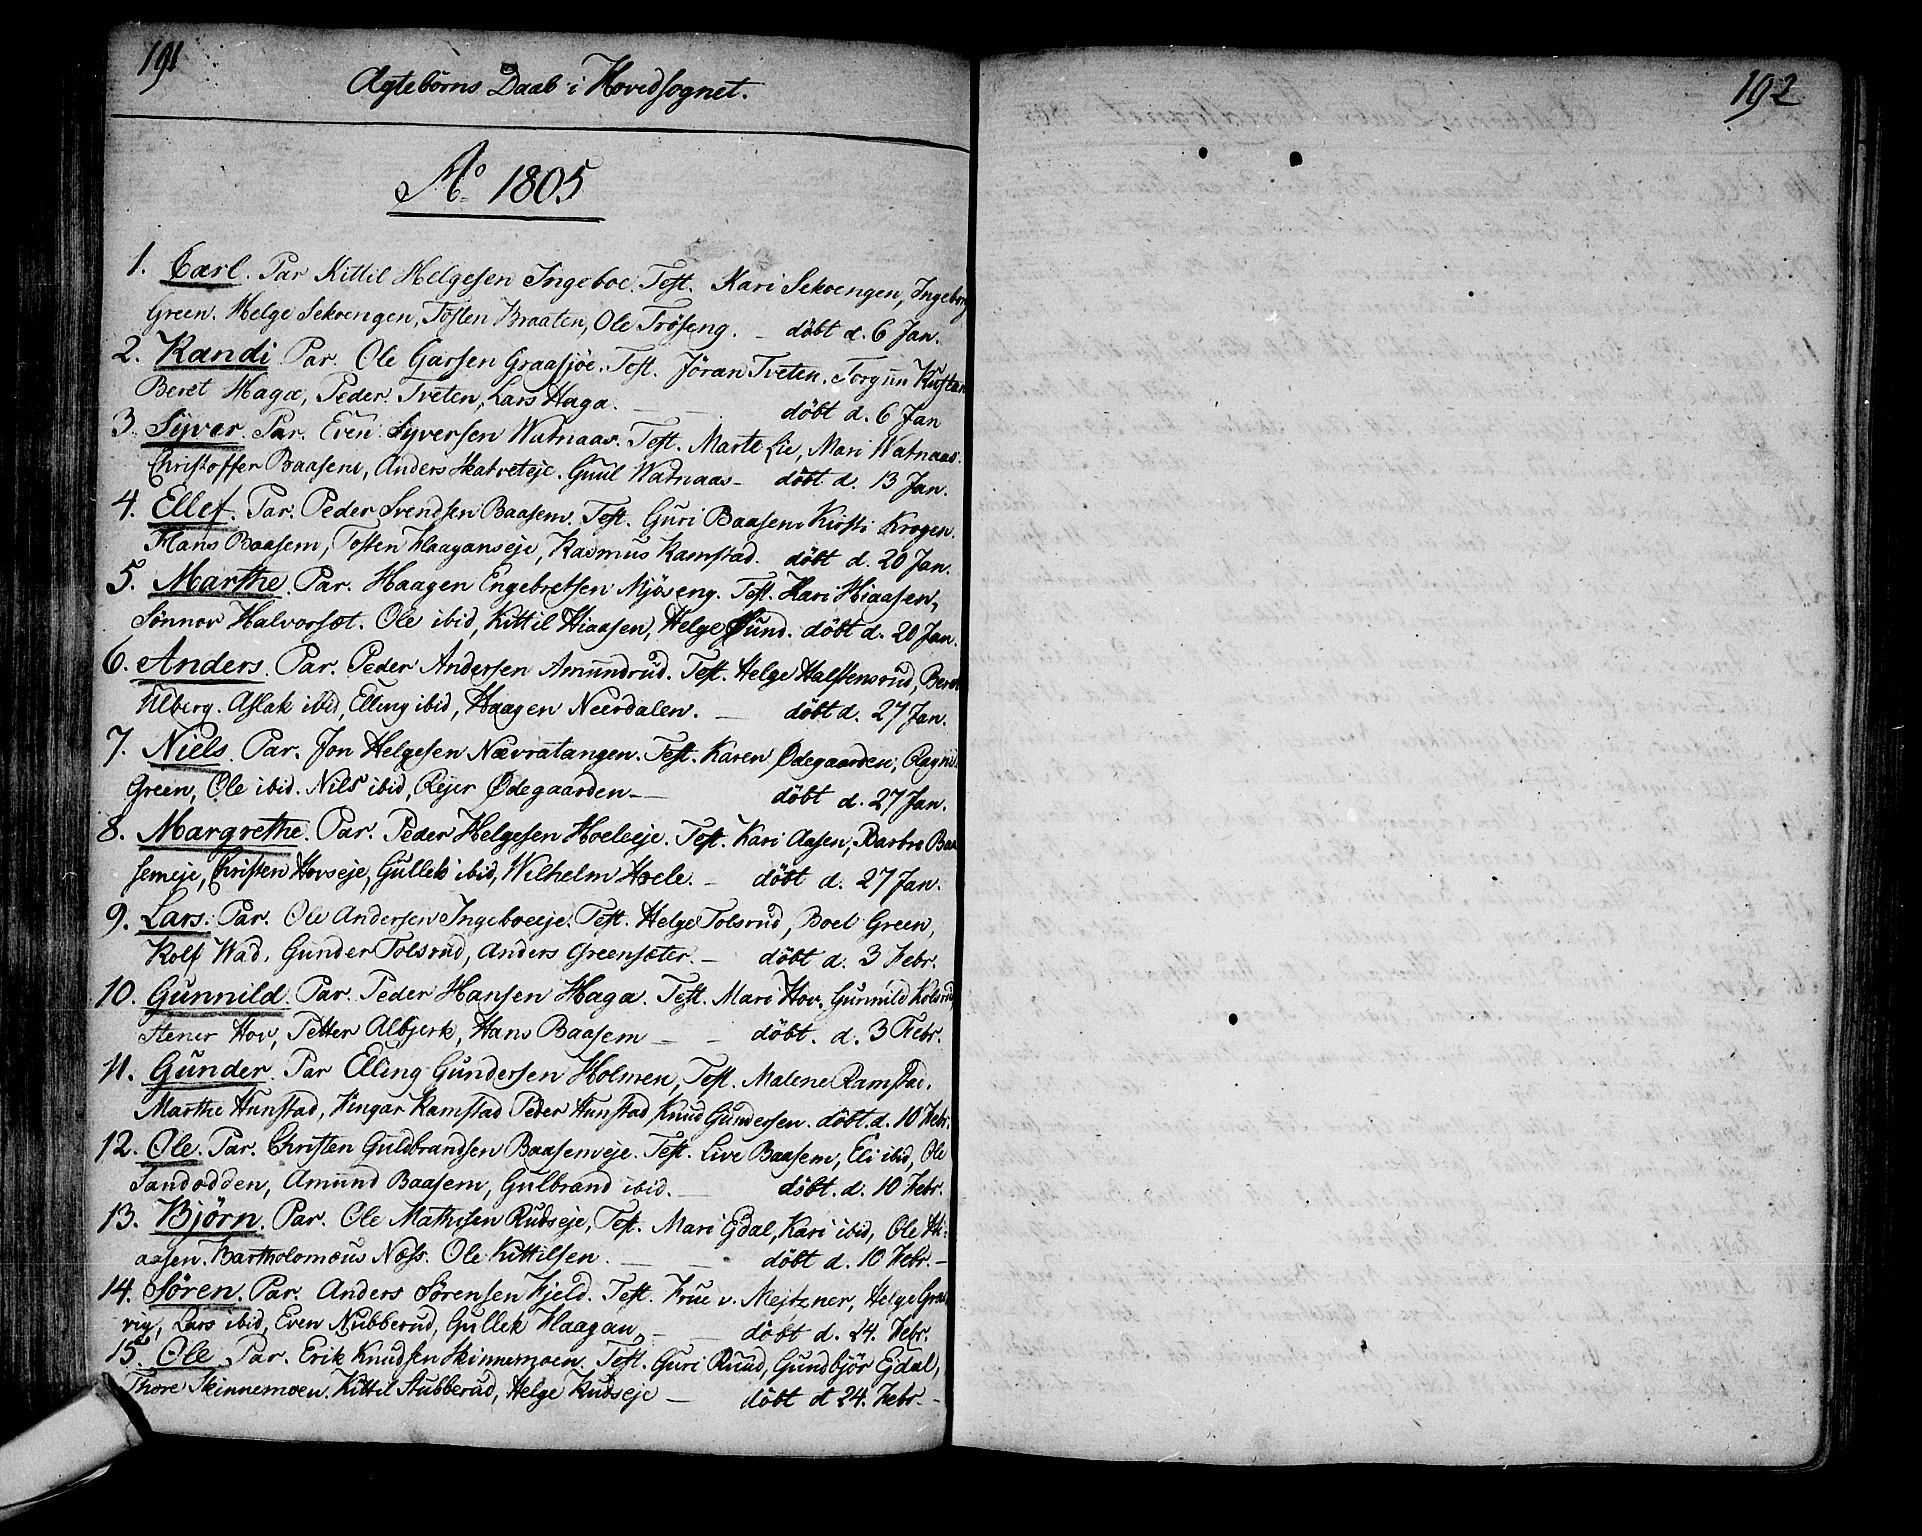 191
Ægtebörns Daab i Hovedsognet.
Ao 1805
1. Carl. Par Kittil Helgesen Ingeboe. Test. Kari Sekoengen, Ingeborg
Green. Helge Sekoengen, Tosten Braaten, Ole Tröseng. döbt d. 6 Jan.
2. Randi Par. Ole Garsen Graasjöe. Test. Jöran Tveten. Torgun
Beret Haga, Peder Tveten, Lars Haga. döbt d. 6 Jan
3. Syver. Par. Even Syversen Watnaas. Test. Marte Lie, Mari Watnaas.
Christoffer Baasem, Anders Skatveteje. Guul Watnaas döbt d. 13 Jan.
4. Ellef. Par. Peder Svendsen Baasem. Test. Guri Baasem Kirsti Krogen.
Hans Baasem, Tosten Haaganseje, Rasmus Ramstad. döbt d. 20 Jan.
5. Marthe. Par. Haagen Engebretsen Mjöseng. Test. Kari Hiaasen,
Sönnov Halvorsæt. Ole ibid, Kittil Hiaasen, Helge Sund. döbt d. 20 Jan.
6. Anders. Par. Peder Andersen Amundrud. Test. Helge Halstensrud, Beret
Ulberg. Aslak ibid, Elling ibid, Haagen Neerdalen. döbt d. 27 Jan.
7. Niels. Par. Jon Helgesen Nævratangen. Test. Karen Ødegaarden, Ragnil
Green, Ole ibid. Nils ibid, Rejer Ødegaarden döbt d. 27 Jan.
8. Margrethe. Par. Peder Helgesen Hoeleeje. Test. Kari Aasen, Barbro Baa
semeje, Christen Hovseje, Gullek ibid, Wilhelm Hoele. döbt d. 27 Jan.
9. Lars. Par. Ole Andersen Ingeboeeje. Test. Helge Tolsrud, Boel Green,
Rolf Wad, Gunder Tolsrud, Anders Greensæter. döbt d. 3 Febr.
10. Gunnild. Par. Peder Hansen Haga. Test. Mari Hov. Gunnild Kolsrud
Stener Hov, Petter Albjerk, Hans Baasem döbt. d. 3 Febr.
11. Gunder. Par Elling Gundersen Holmen, Test. Malene Ramstad.
Marthe Hunstad, Hingar Ramstad Peder Hunstad Knud Gundersen. döbt. d. 10 Febr.
12. Ole. Par. Christen Guldbrandsen Baasemeje. Test. Live Baasem, Eli ibid, Ole
Sandodden, Amund Baasem, Gulbrand ibid. döbt. d. 10 Febr.
13. Björn. Par. Ole Mathisen Rudseje, Test. Mari Ejdal, Kari ibid, Ole Hi-
aasen. Bartholomæus Næss. Ole Kittilsen. döbt d. 10 Febr.
14. Sören. Par. Anders Sörensen Fjeld. Test. Frue v. Mejtzner, Helge Gra
vey, Lars ibid, Even Nubberud, Gullek Haagan döbt d. 24. Febr.
15. Ole Par. Erik Knudsen Skinnemoen. Test. Guri Ruud, Gundbjör Ejdal,
Thore Skinnemoen. Kittil Stubberud, Helge Rudseje döbt d 24. Febr.
192